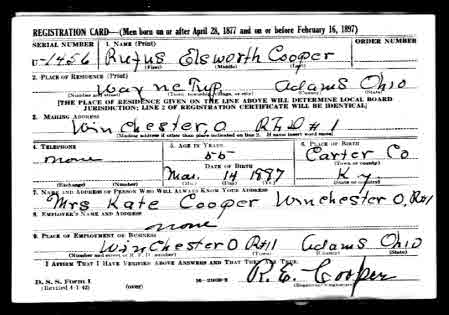 REGISTRATION CARD—(Men born on or after April 28, 1877 and on or before February 16, 1897)
SERIAL NUMBER 1. NAME (Print) ORDER NUMBER
U-1456 Rufus Elsworth Cooper
(First) (Middle) (Last)
2. PLACE OF RESIDENCE (Print)
Wayne Twp. Adams Ohio
(Number and street) (Town, township, village, or city) (County) (State)
[THE PLACE OF RESIDENCE GIVEN ON THE LINE ABOVE WILL DETERMINE LOCAL BOARD
JURISDICTION; LINE 2 OF REGISTRATION CERTIFICATE WILL BE IDENTICAL]
3. MAILING ADDRESS
Winchester, O R.F.D #1
[Mailing address if other than place indicated on line 2. If same insert word same]
4. TELEPHONE 5. AGE IN YEARS 6. PLACE OF BIRTH
none 55 Carter Co
DATE OF BIRTH (Town or county)
Mar. 14 1887 Ky.
(Exchange) (Number) (Mo.) (Day) (Yr.) (State or country)
7. NAME AND ADDRESS OF PERSON WHO WILL ALWAYS KNOW YOUR ADDRESS
Mrs Kate Cooper Winchester O, R#1
8. EMPLOYER'S NAME AND ADDRESS
none
9. PLACE OF EMPLOYMENT OR BUSINESS
Winchester O R#1 Adams Ohio
(Number and street or R. F. D. number) (Town) (County) (State)
I AFFIRM THAT I HAVE VERIFIED ABOVE ANSWERS AND THAT THEY ARE TRUE.
D. S. S. Form 1
(Revised 4-1-42) (over)
R. E. Cooper